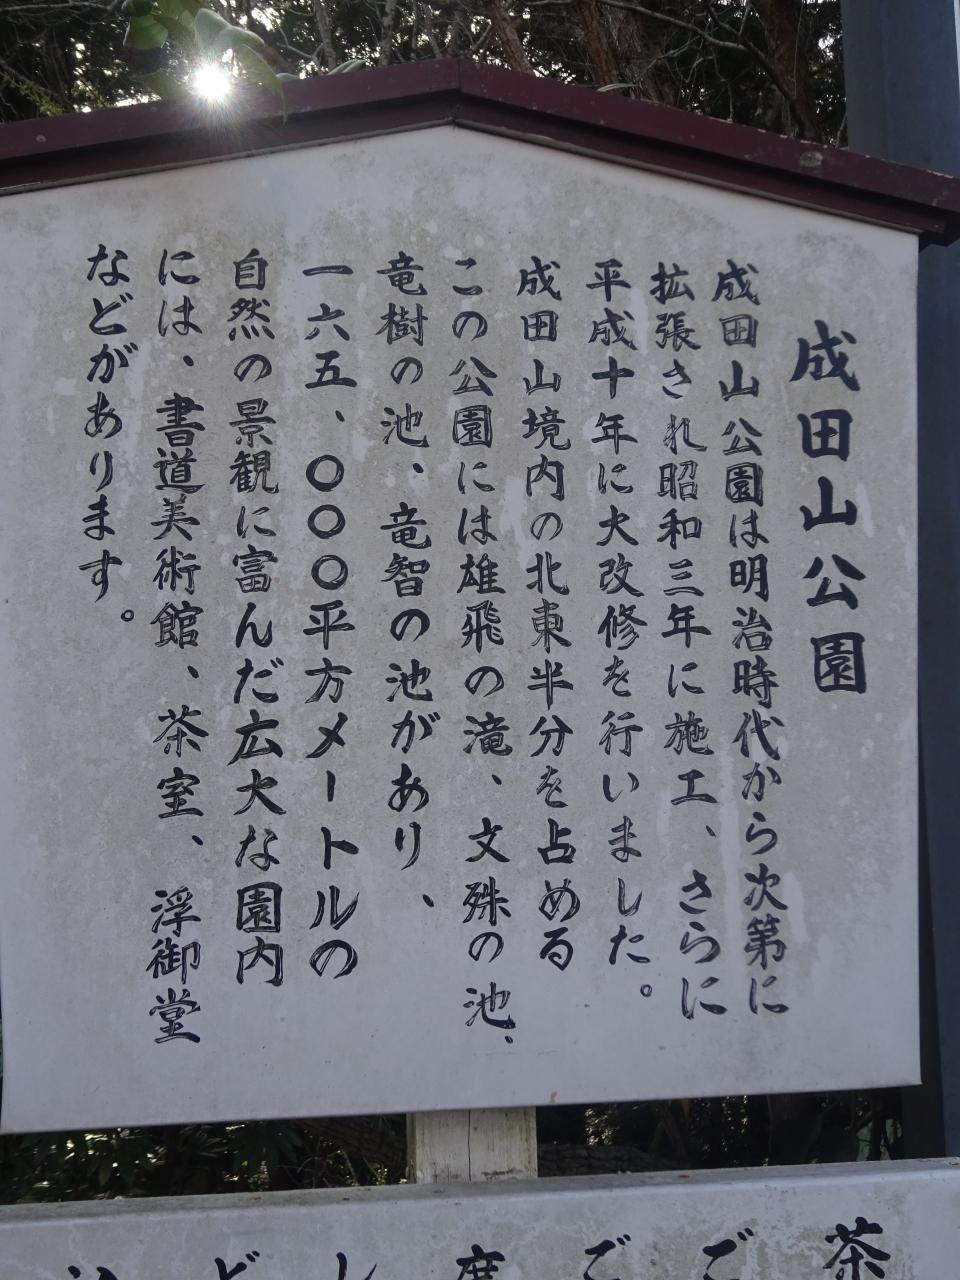 成田山公園
成田山公園は明治時代から次第に
拡張され昭和三年に施工、さらに
平成十年に大改修を行いました。
成田山境内の北東半分を占める
この公園には雄飛の滝、文殊の池、
竜樹の池、竜智の池があり、
一六五、〇〇〇平方メートルの
自然の景観に富んだ広大な園内
には、書道美術館、茶室、浮御堂
などがあります。
茶
ご
ご
度
し
ど